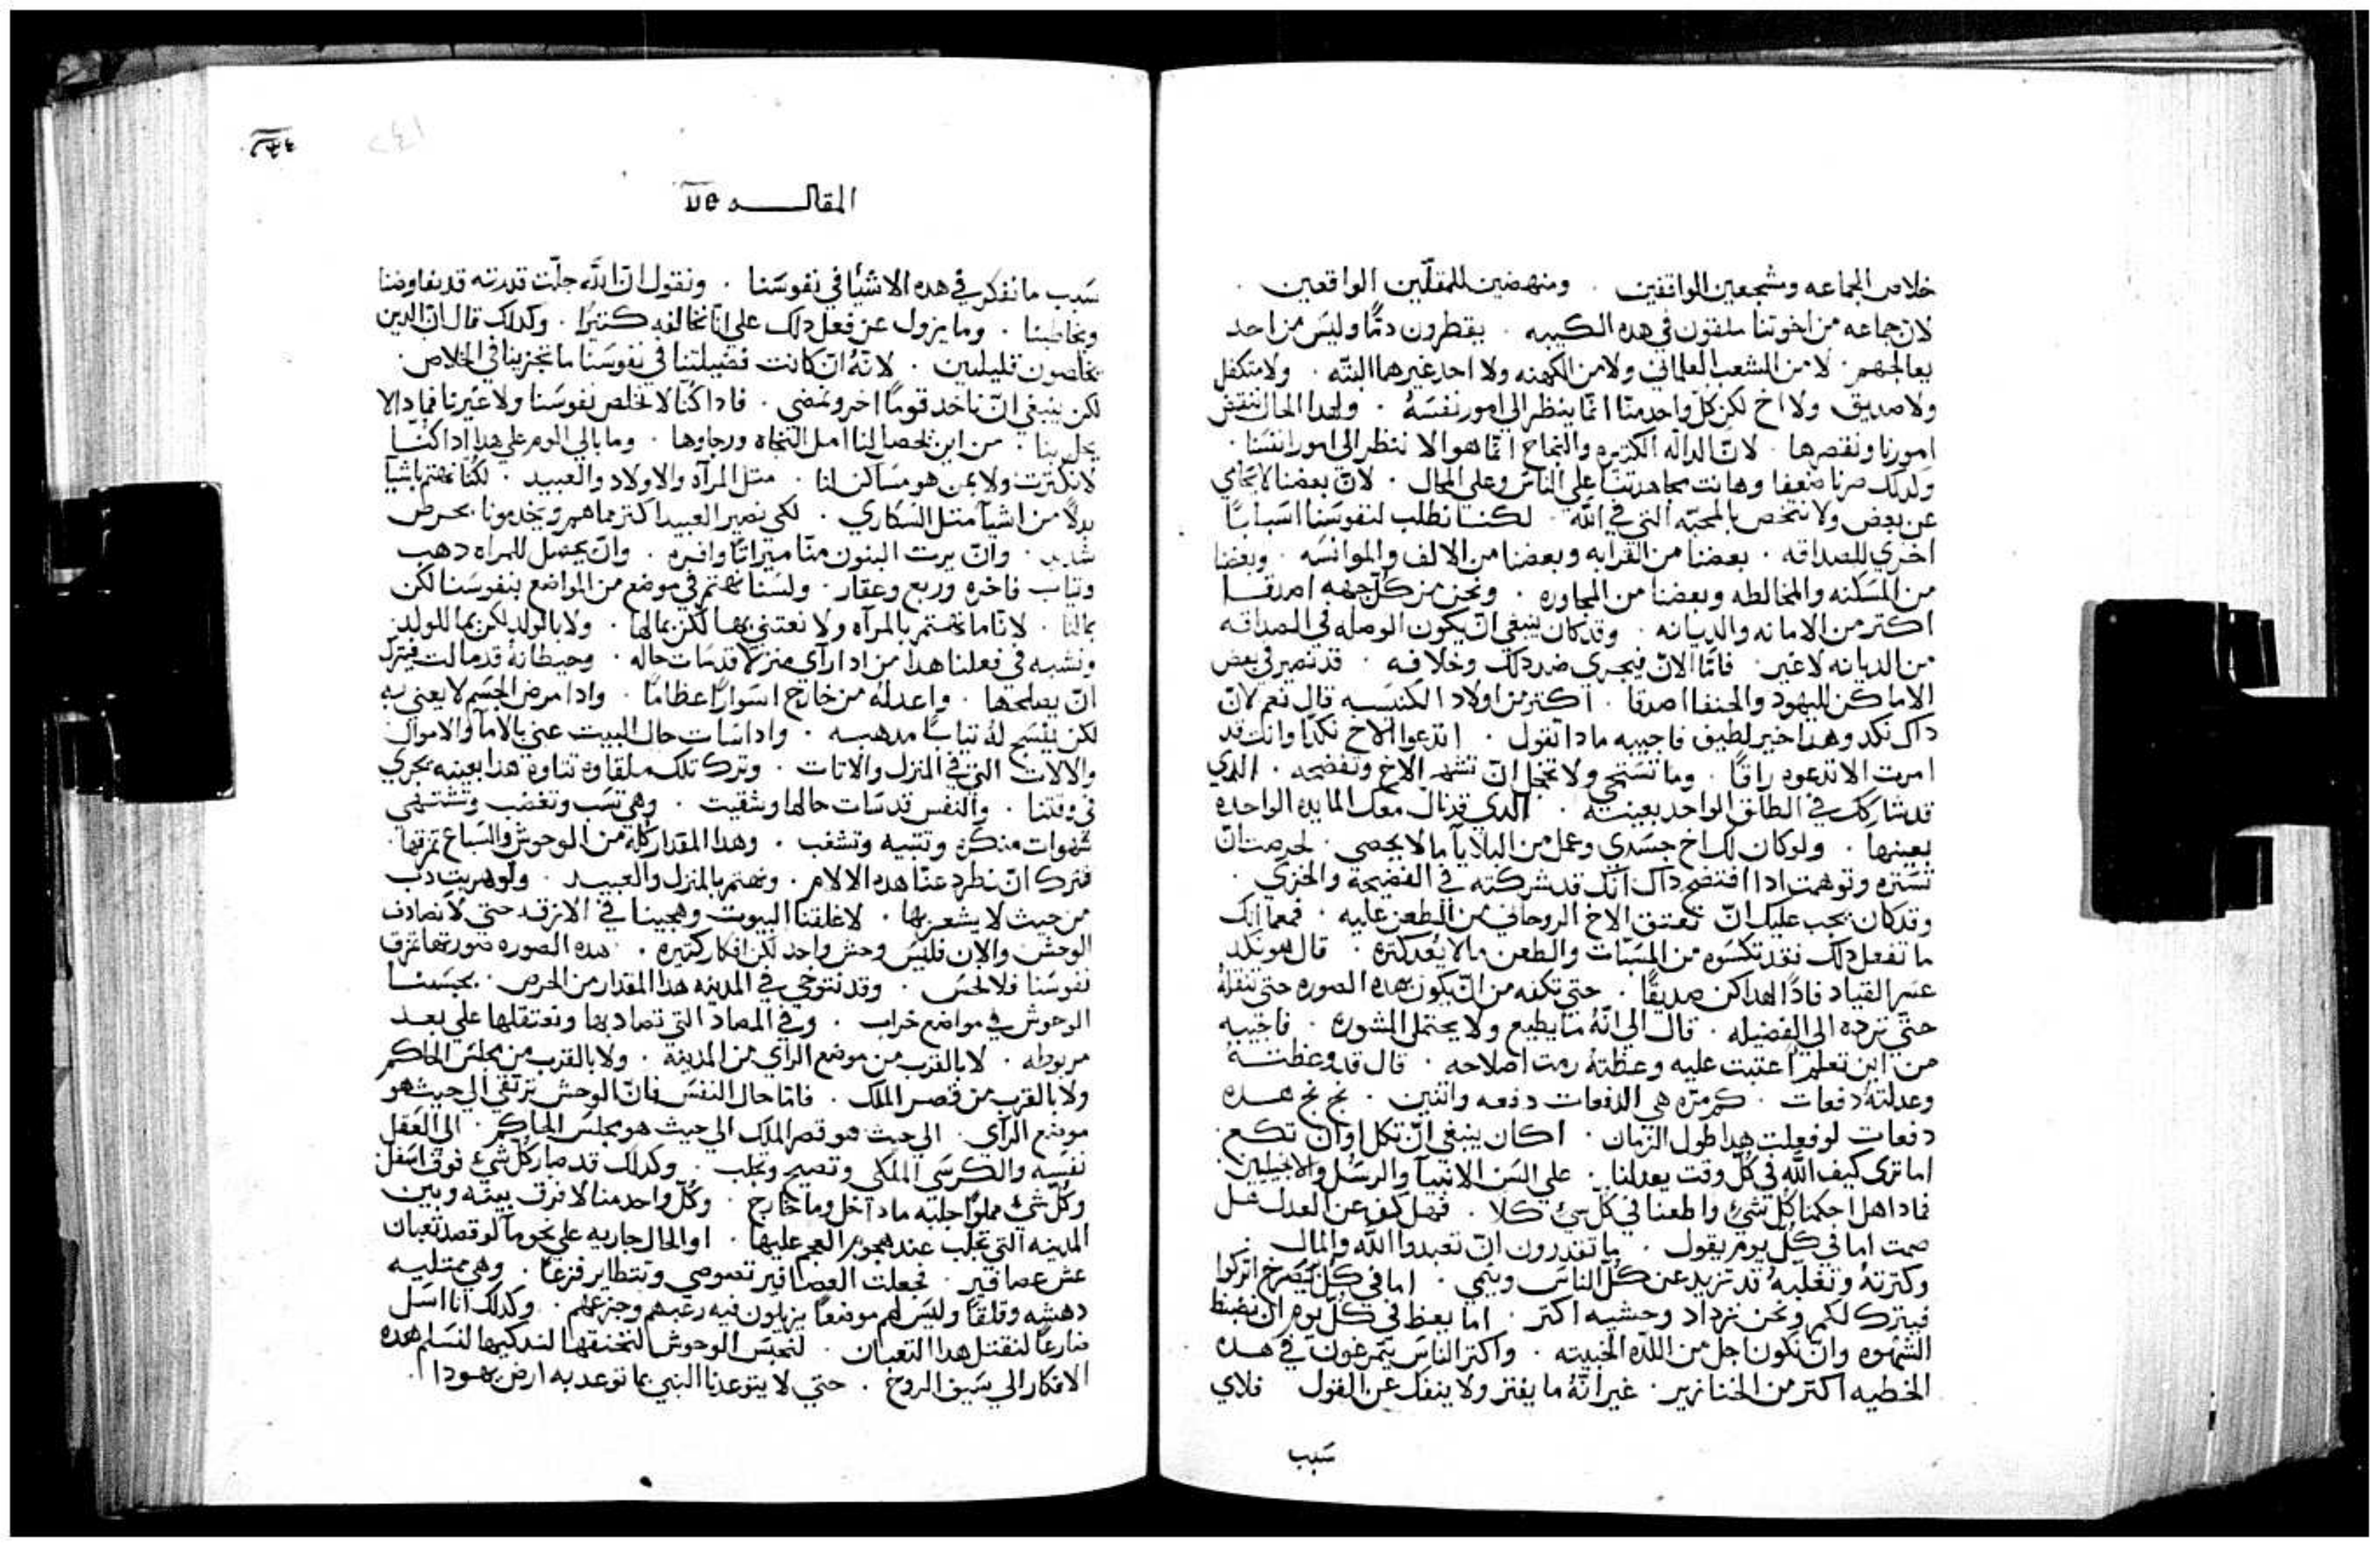 خلاص الجماعه ومشجعين الواقفين . ومنهضين للمقلّين الواقعين .
لان جماعه من اخوتنا ملقون في هده الكييبه . يقطرون دمًا وليس من احد
يعالجهم . لا من الشعب العلماني ولا من الكهنه ولا احد غيرهما البتّه . ولا متكفل
ولا صديق ولا اخ لكن كلّ واحد منّا انّما ينظر الي امور نفسَهُ . ولهدا الحال ننقض
امورنا ونقصرها . لانّ الدالّه الكتيره والنجاح انّما هو الا ننظر الي امور انفسنا .
ولدلك صرنا ضعفا وهانت مجاهدتنا علي الناس وعلي المحال . لانّ بعضنا لا يحامي
عن بعض ولا نتخصص بالمحبّه التي في الله . لكننا نطلب لنفوسَنا اسَبابًا
اخري للصداقه . بعضنا من القرابه وبعضنا من الالف والموانسَه . وبعضنا
من المسَكنه والمخالطه وبعضنا من المجاوره . ونحن من كل جهه اصدقا
اكتر من الامانه والديانه . وقد كان ينبغي انّ يكون الوصله في الصداقه
من الديانه لا غير . فامّا الانّ فيجري ضد دلك وخلافه . قد نصير في بعض
الاماكن لليهود والحنفا اصدقا . اكتر من اولاد الكنيسَه قال نعم لانّ
داك نكد وهدا خير لطيف فاجيبه مادا تقول . اتدعوا الاخ نكدًا وانك قد
امرت الا تدعوه راقًا . وما تسَتحي ولا تخجل انّ تشهر الاخ وتفضحه . الدي
قد شاركك في الطلق الواحد بعينه . الدي قد نال معك المايده الواحده
بعينها . ولو كان لك اخ جسَدي وعمل من البلايا ما لا يحصي . لحرصت انّ
تسَتره وتوهمت ادا افتضح داك انّك قد شركته في الفضيحة والخزي .
وقد كان يجب عليك انّ تعتق الاخ الروحاني من الطعن عليه . فمعما انّك
ما تفعل دلك فقد تكسَوه من المسَبّات والطعن ما لا يُعد كتره . قال هو نكد
عسَر القياد فادًا لهدا كن صديقًا . حتي تكفه من انّ يكون بهده الصوره حتي تنقلهُ
حتّي ترده الي الفضيله . قال الي انّهُ ما يطيع ولا يحتمل المشوره . فاجيبه
من اين تعلم اعتبت عليه وعظتهُ رمت اصلاحه . قال قد وعظتهُ
وعدلتهُ دفعات . كم مرّه هي الدفعات دفعه واتنين . نج نج هده
دفعات لو فعلت هدا طول الزمان . اكان ينبغي انّ تكل اوان تكع .
اما تري كيف الله في كلّ وقت يعدلنا . علي السَن الانبيآ والرسَل والانجيليين .
فمادا هل احكمنا كل شيّ واطعنا في كلّ شيّ كلا . فهل كف عن العدل هل
صمت اما في كلّ يوم يقول . ما تقدرون انّ تعبدوا الله والمال .
وكترتهُ وتغلّبهُ قد تزيد عن كلّ الناسَ وينمي . اما في كل يَصرخ اتركوا
فيترك لكم ونحن نزداد وحشيه اكتر . اما يعظ في كل يوم ان نضبط
الشهوه وانّ نكون اجل من اللدّه الخبيته . واكتر الناسَ يتمرغون في هده
الخطيه اكتر من الخنازير . غير انّهُ ما يفتر ولا ينفك عن القول فلاي
سَبب
٢٤٤
المقاله ٧٥
سَبب ما نفكر في هده الاشيا في نفوسَنا . ونقول انّ الله جلّت قدرته قد يفاوضنا
ويخاطبنا . وما يزول عن فعل دلك علي انّا نخالفه كتيرًا . وكدلك قال انّ الدين
يخلصون قليلين . لانّهُ ان كانت فضيلتنا في نفوسَنا ما تجزينا في الخلاص .
لكن ينبغي انّ ناخد قومًا اخر ونمضي . فادا كنّا لا نخلص نفوسَنا ولا غيرنا فمادا
يحل بنا . من اين يحصل لنا امل النجاه ورجاوها . وما بالي الوم علي هدا ادا كنّا
لا نكترت ولا بمن هو مسَاكن لنا . متل المرآه والاولاد والعبيد . لكنّا نهتم باشيآ
بدلًا من اشيآ متل السَكاري . لكي نصير العبيد اكتر مما هم ويخدمونا بحرص
شديد . وانّ يرت البنون منّا ميراتًا وافره . وانّ يحصل للمراه دهب
وتياب فاخره وربع وعقار . ولسَنا نهتم في موضع من المواضع بنفوسَنا لكن
بمالنا . لانّا ما نهتم بالمرآه ولا نعتني بها لكن بمالها . ولا بالولد لكن بما للولد
ونشبه في فعلنا هدا من ادا رآي منزلا قد سَات حاله . وحيطانهُ قد مالت فيترك
انّ يصلحها . واعد لهُ من خارج اسَوارًا عظامًا . وادا مرض الجسَم لا يعني به
لكن ينسَج لهُ تيابًا مدهبه . وادا سَات حال البيت عني بالامآ والاموال
والالات التي في المنزل والاتات . وترك تلك ملقاوه تتاوه هدا بعينه يجري
في وقتنا . والنفس قد سَات حالها وشقيت . وهي تسَب وتغضب وتشتهي
شهوات منكره وتتيه وتشغب . وهدا المقدار كله من الوحوش والسَباع تمزقها .
فنترك انّ نطرد عنّا هده الالام . ونهتم بالمنزل والعبيد . ولو هربت دب
من حيث لا يشعر بها . لاغلقنا البيوت وهجينا في الازقه حتي لا نصادف
الوحش والان فليسَ وحش واحد لكن افكار كتيره . هده الصوره صورتها تمزق
نفوسَنا فلا نحسَ . وقد نتوخي في المدينه هدا المقدار من الحرص . بحبسَنا
الوحوش في مواضع خراب . وفي المصاد التي تصاد بها ونعتقلها علي بعد
مربوطه . لا بالقرب من موضع الراي من المدينة . ولا بالقرب من مجلسَ الحاكم
ولا بالقرب من قصر الملك . فامّا حال النفسَ فانّ الوحش ترتقي الي حيت هو
موضع الراي . الي حيث هو قصر الملك الي حيث هو مجلسَ الحاكم . الي العقل
نفسَه والكرسَي الملكي وتصيح وتجلب . وكدلك قد صار كلّ شيّ فوق اسَفل
وكل شيّ مملوًا جلبه ما داخل وما خارج . وكلّ واحد منا لا فرق بينه وبين
المدينه التي تجلب عند هجوم العجم عليها . او الحال جاريه علي نحو ما لو قصد تعبان
عش عصافير . فجعلت العصافير تصوصي وتتطاير فزعًا . وهي ممتليه
دهشه وقلقًا وليسَ لهم موضعًا يزيلون فيه رعبهم وجزعهم . وكدلك انا اسَل
ضارعًا لنقتل هدا التعبان . لنحبسَ الوحوش لنخنقها لندكيها لنسَلم هده
الافكار الي سَيف الروح . حتي لا يتوعدنا النبي بما توعد به ارض يهودا .